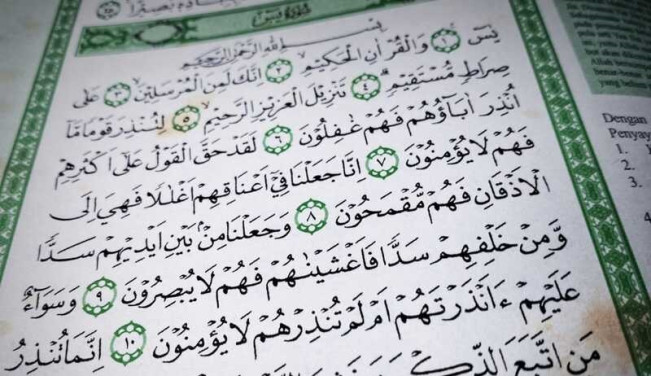 سُوْرَةُ يٰسٓ
بِسْــــــمِ اللّٰهِ الرَّحْمٰنِ الرَّحِيْمِ
يٰسٓ ۝١ وَالْقُرْاٰنِ الْحَكِيْمِۙ ۝٢ اِنَّكَ لَمِنَ الْمُرْسَلِيْنَۙ ۝٣ عَلٰى
صِرَاطٍ مُّسْتَقِيْمٍۗ ۝٤ تَنْزِيْلَ الْعَزِيْزِ الرَّحِيْمِۙ ۝٥ لِتُنْذِرَ قَوْمًا مَّآ
اُنْذِرَ اٰبَاۤؤُهُمْ فَهُمْ غٰفِلُوْنَ ۝٦ لَقَدْ حَقَّ الْقَوْلُ عَلٰٓى اَكْثَرِهِمْ
فَهُمْ لَا يُؤْمِنُوْنَ ۝٧ اِنَّا جَعَلْنَا فِيْٓ اَعْنَاقِهِمْ اَغْلٰلًا فَهِيَ اِلَى
الْاَذْقَانِ فَهُمْ مُّقْمَحُوْنَ ۝٨ وَجَعَلْنَا مِنْۢ بَيْنِ اَيْدِيْهِمْ سَدًّا
وَّمِنْ خَلْفِهِمْ سَدًّا فَاَغْشَيْنٰهُمْ فَهُمْ لَا يُبْصِرُوْنَ ۝٩ وَسَوَاۤءٌ
عَلَيْهِمْ ءَاَنْذَرْتَهُمْ اَمْ لَمْ تُنْذِرْهُمْ لَا يُؤْمِنُوْنَ ۝١٠ اِنَّمَا تُنْذِرُ
مَنِ اتَّبَعَ الذِّكْرَ
Dengan
Penyay
1.
2.
3.
4